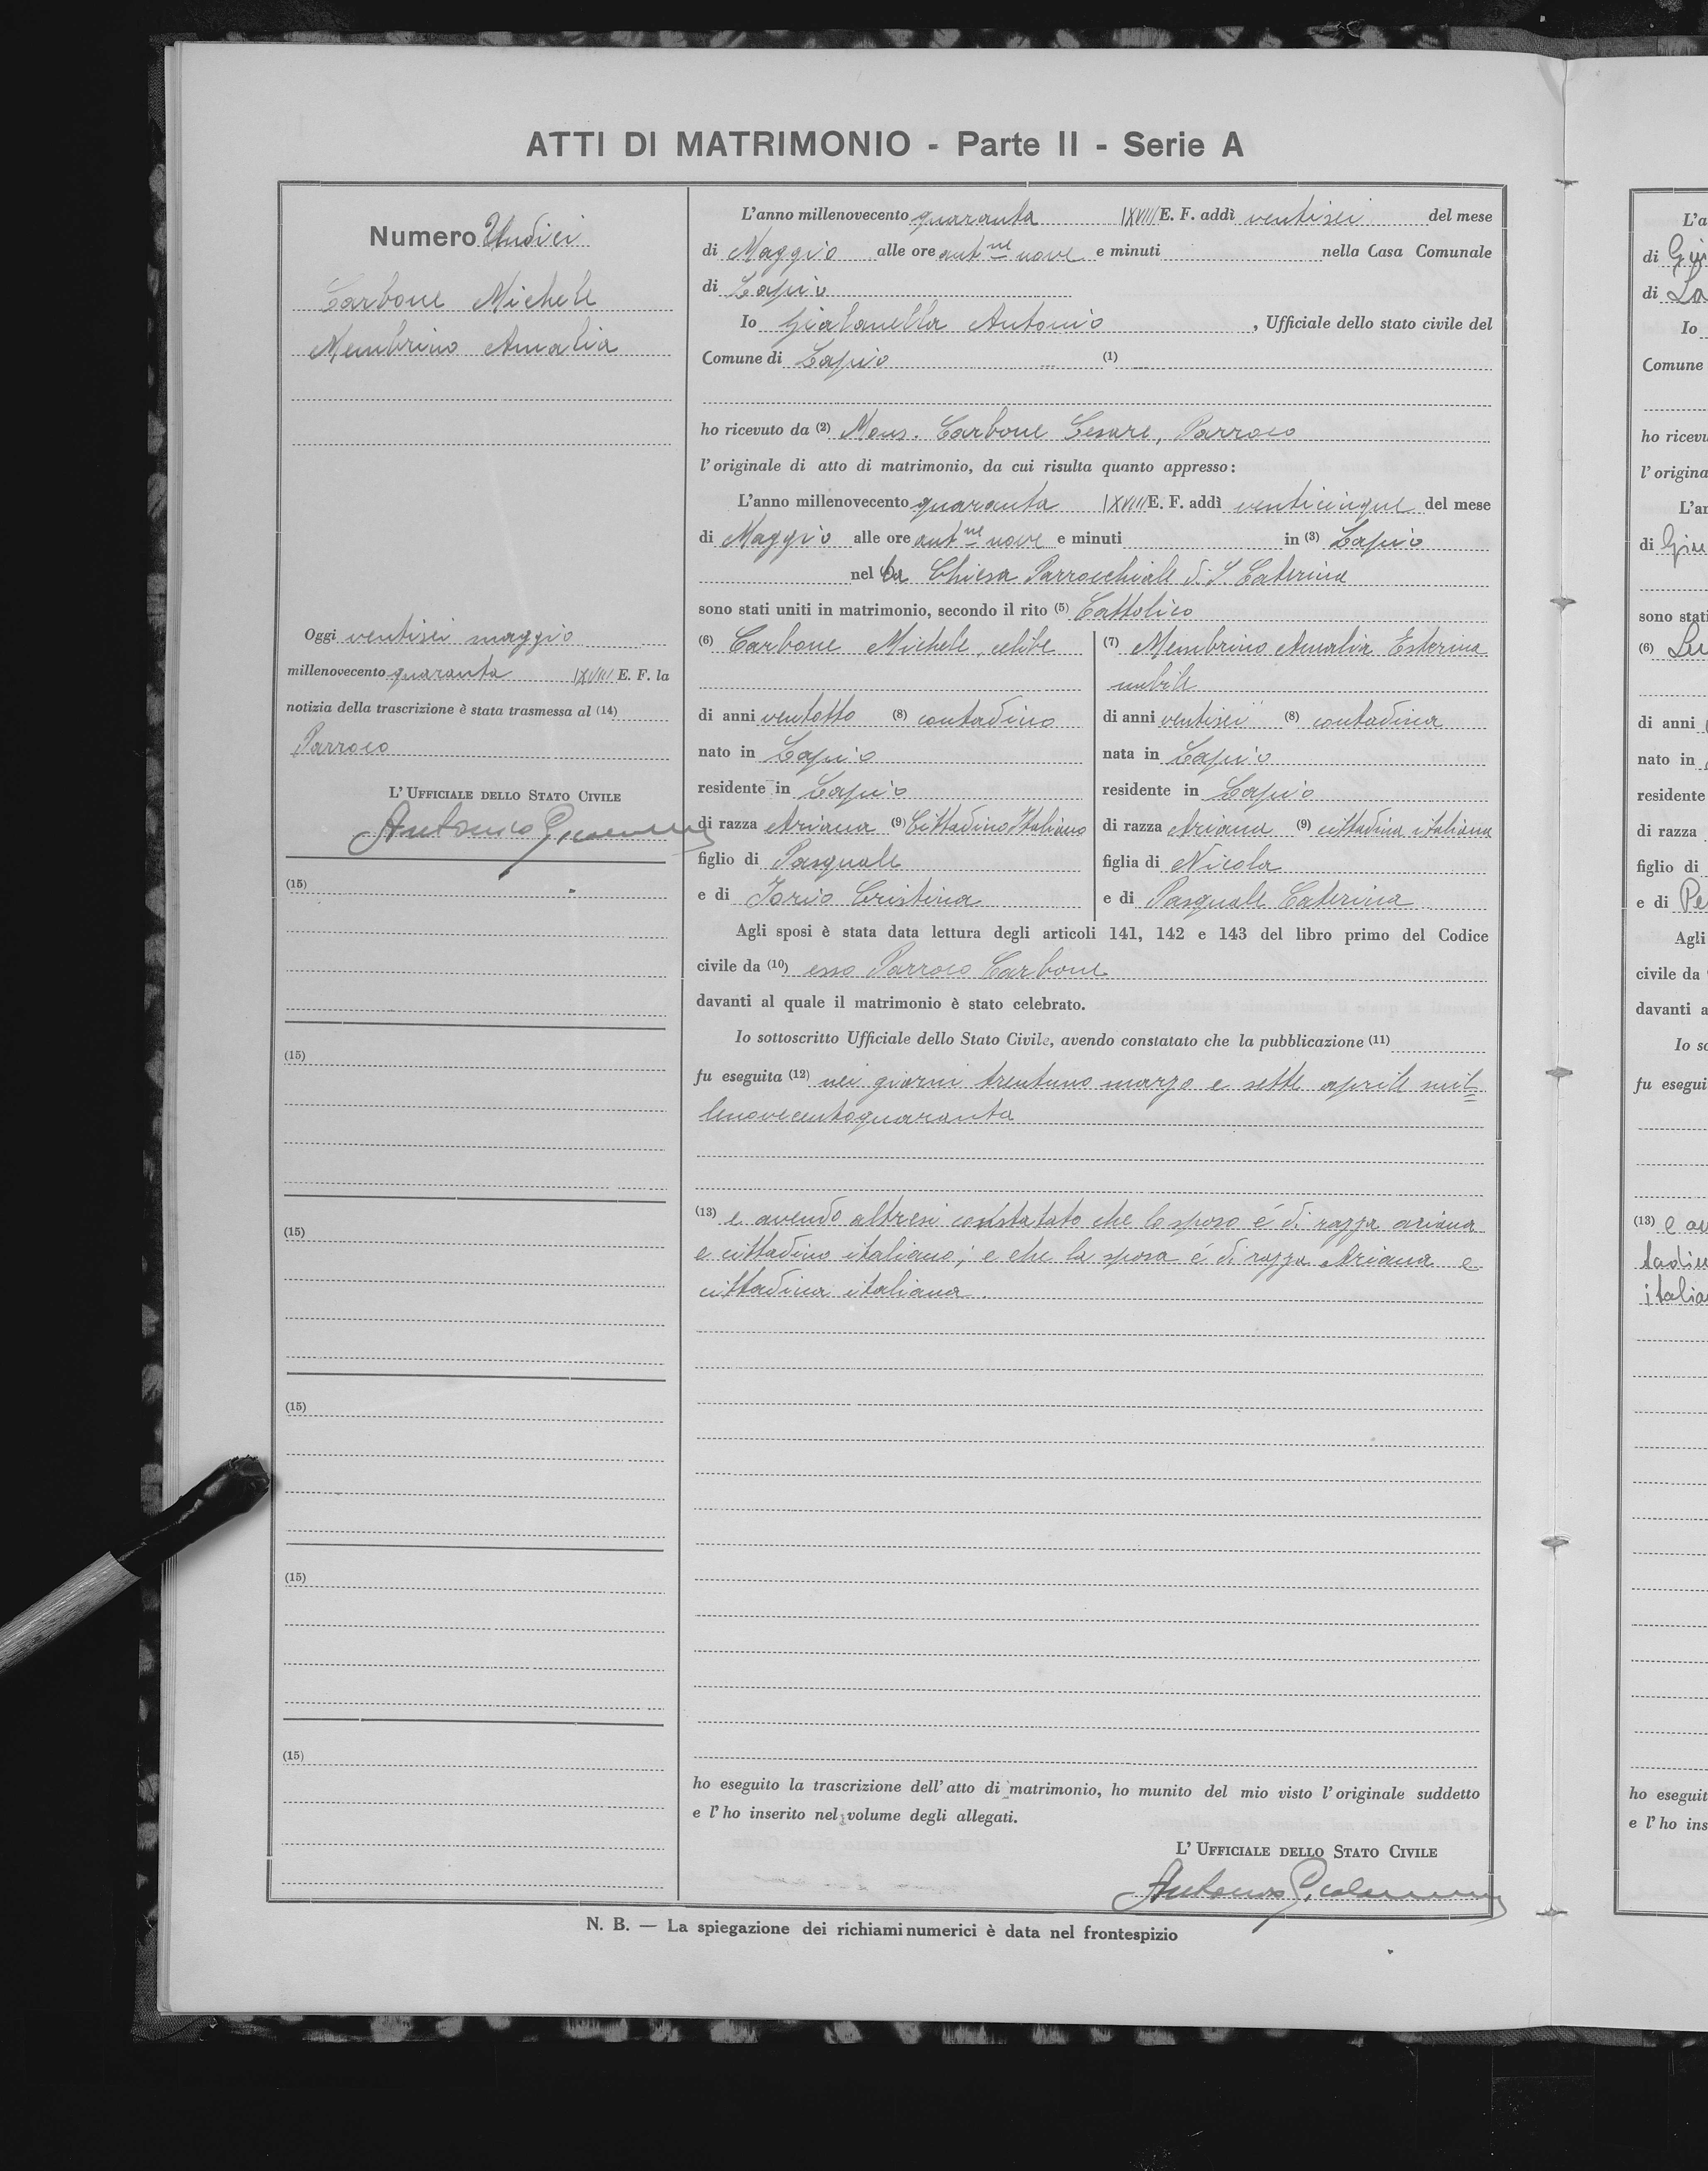 ATTI DI MATRIMONIO - Parte II - Serie A
Numero Undici
Carbone Michele
Membrino Amalia
Oggi ventisei maggio
millenovecento quaranta /XVIII/ E. F. la
notizia della trascrizione è stata trasmessa al (14)
Parroco
L'UFFICIALE DELLO STATO CIVILE
Antonio
(15)
(15)
(15)
(15)
(15)
(15)
L'anno millenovecento quaranta /XVIII/ E. F. addì ventisei del mese
di Maggio alle ore antne nove e minuti nella Casa Comunale
di Lapio
Io Gialanella Antonio , Ufficiale dello stato civile del
Comune di Lapio (1)
ho ricevuto da (2) Mons. Carbone Cesare, Parroco
l'originale di atto di matrimonio, da cui risulta quanto appresso:
L'anno millenovecento quaranta /XVIII/ E. F. addì venticinque del mese
di Maggio alle ore antne nove e minuti in (3) Lapio
nel la Chiesa Parrocchiale di S. Caterina
sono stati uniti in matrimonio, secondo il rito (5) Cattolico
(6) Carbone Michele celibe
di anni ventotto (8) contadino
nato in Lapio
residente in Lapio
di razza Ariana (9) Cittadino Italiano
figlio di Pasquale
e di Iorio Cristina
(7) Membrino Amalia Esterina
nubile
di anni ventisei (8) contadina
nata in Lapio
residente in Lapio
di razza Ariana (9) cittadina italiana
figlia di Nicola
e di Pasquale Caterina
Agli sposi è stata data lettura degli articoli 141, 142 e 143 del libro primo del Codice
civile da (10) esso Parroco Carbone
davanti al quale il matrimonio è stato celebrato.
Io sottoscritto Ufficiale dello Stato Civile, avendo constatato che la pubblicazione (11)
fu eseguita (12) nei giorni trentuno marzo e sette aprile mil=
lenovecentoquaranta
(13) e avendo altresì constatato che lo sposo é di razza ariana
e cittadino italiano; e che la sposa é di razza Ariana e
cittadina italiana.
ho eseguito la trascrizione dell'atto di matrimonio, ho munito del mio visto l'originale suddetto
e l'ho inserito nel volume degli allegati.
L'UFFICIALE DELLO STATO CIVILE
Antonio
N. B. — La spiegazione dei richiami numerici è data nel frontespizio
L'a
di
di La
Io
Comune
ho ricevu
l'origina
L'an
di
sono stati
(6)
di anni
nato in
residente
di razza
figlio di
e di Pe
Agli
civile da
davanti a
Io so
fu esegui
(13) e av
tadin
italia
ho eseguit
e l'ho ins